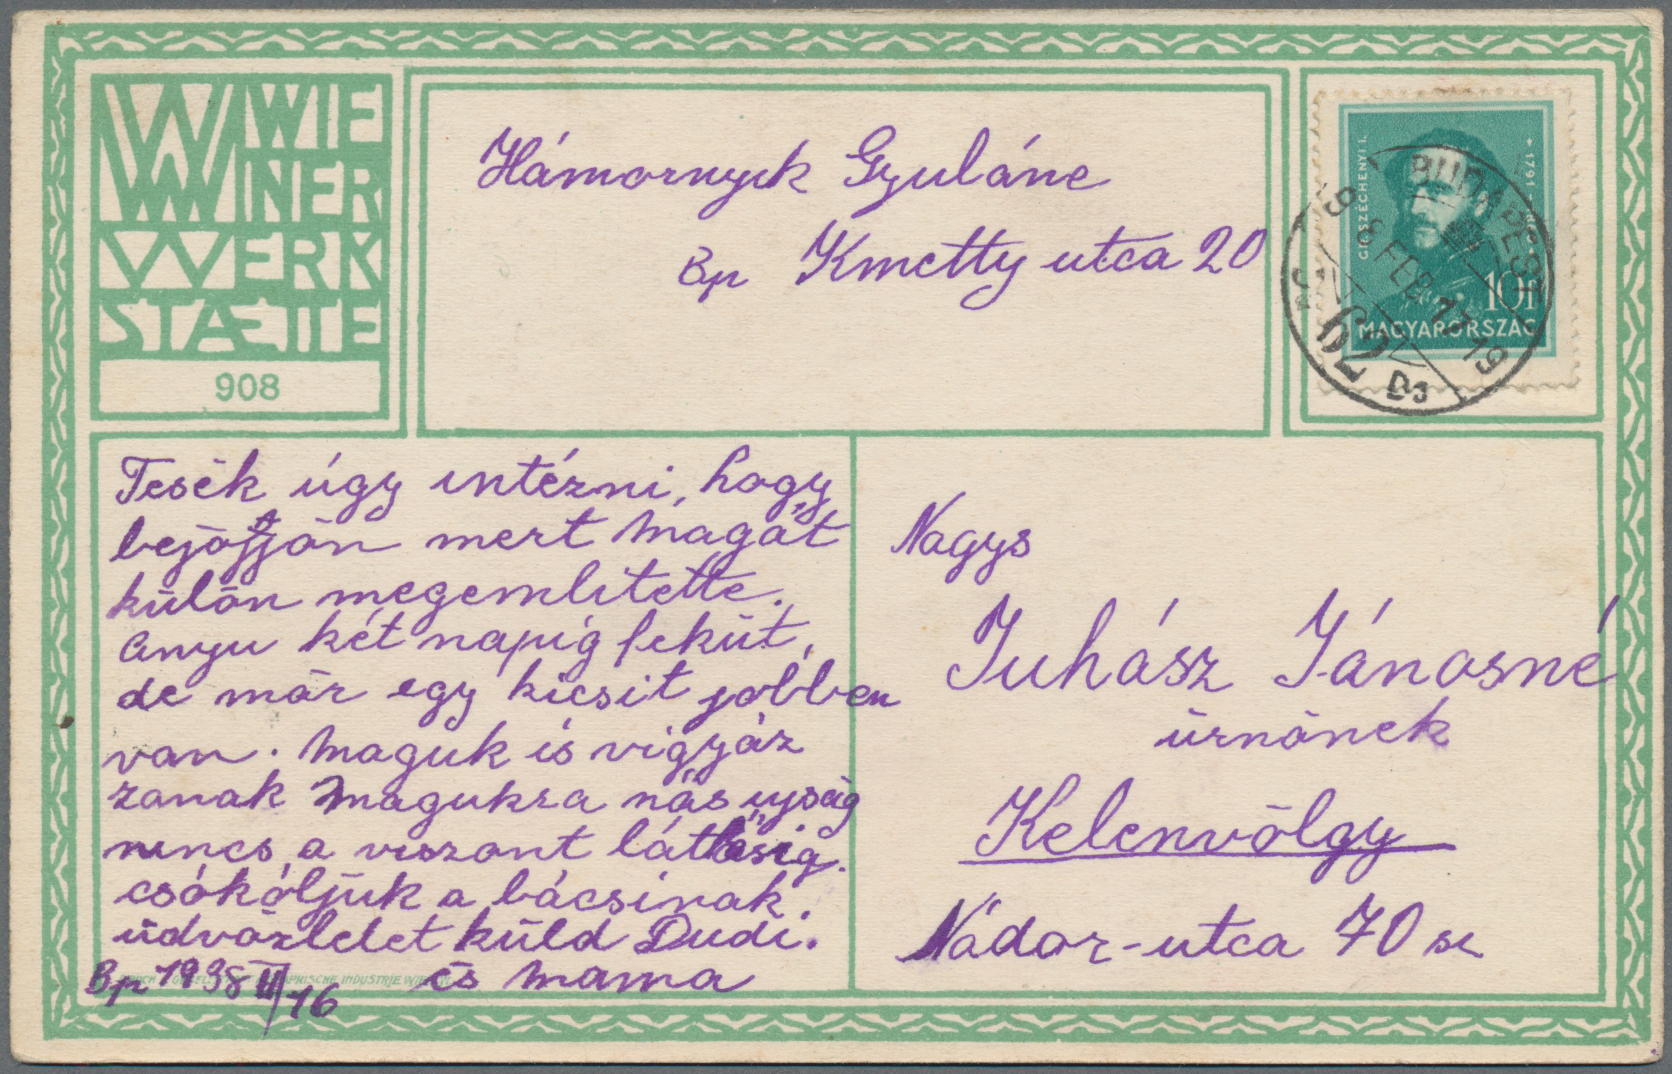 WIE
NER
WERK
STÆTTE
908
Hámornyik Gyuláne
Bp Kmetty utca 20
GR. SZÉCHENYI I.
10f
MAGYARORSZÁG
BUDAPEST
FEB. 17 19
62
Tesék úgy intézni, hogy
bejöjjön mert magát
külön megemlitette.
Anyu két napig feküt,
de már egy kicsit jobben
van. Maguk is vigyáz
zanak magukra más ujság
nincs, a viszont látásig.
csókóljuk a bácsinak
üdvözletet küld Dudi.
és mama
Bp 1938 II/16
Nagys
Juhász Jánosné
úrnőnek
Kelenvölgy
Nádor-utca 70 sz